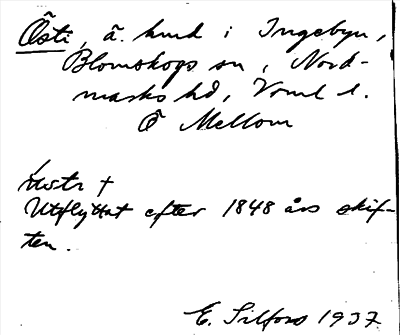 Östi, å. hmd i Ingebyn,
Blomskogs sn, Nord-
marks hd, Vrml l.
Ö Mellom
†
Utflyttat efter 1848 års skif-
ten.
E. Silfors 1937